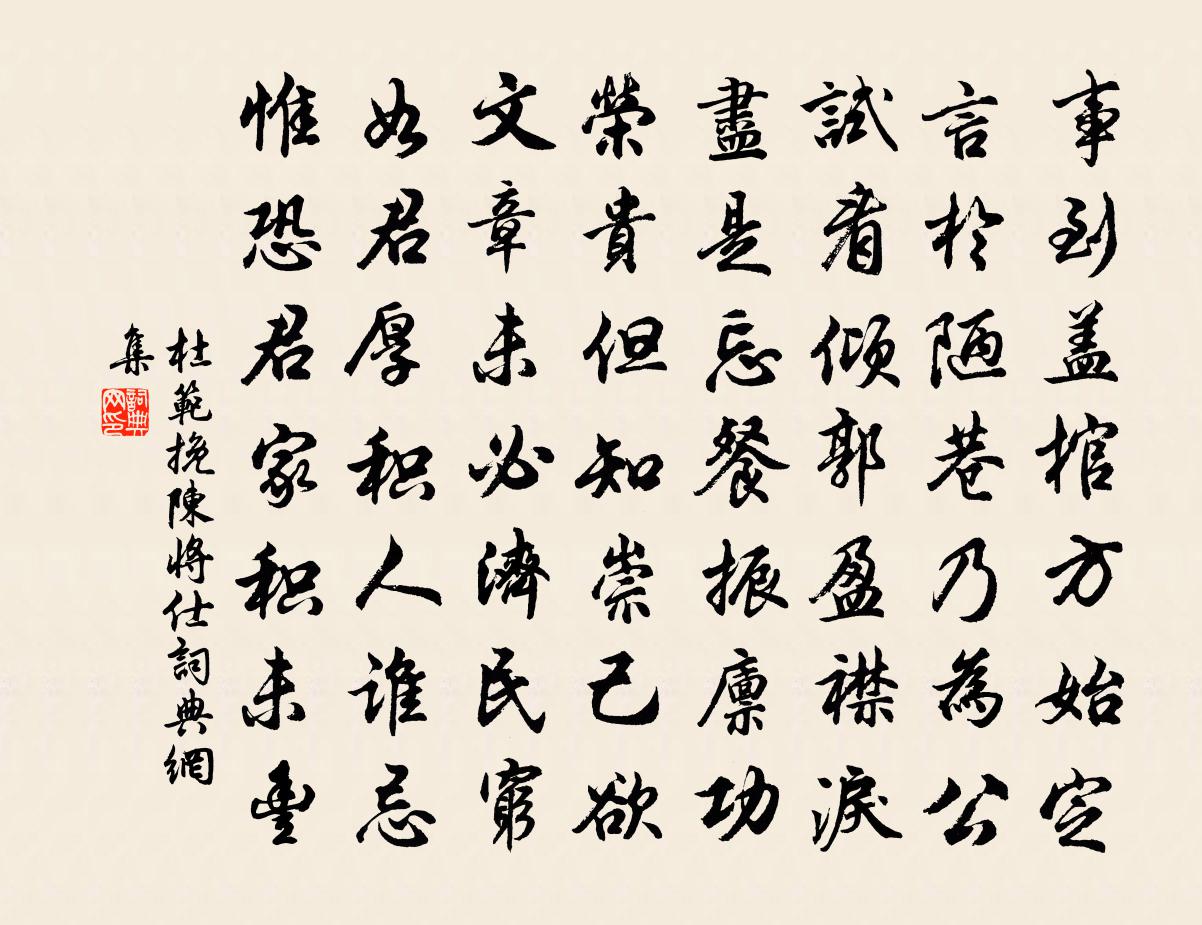 事到盖棺方始定
言於陋巷乃為公
試看傾郭盈襟淚
盡是忘餐振廪功
榮貴但知崇己欲
文章未必濟民窮
如君厚积人誰忌
惟恐君家积未豊
杜範挽陳將仕詞典網
集
詞典网印